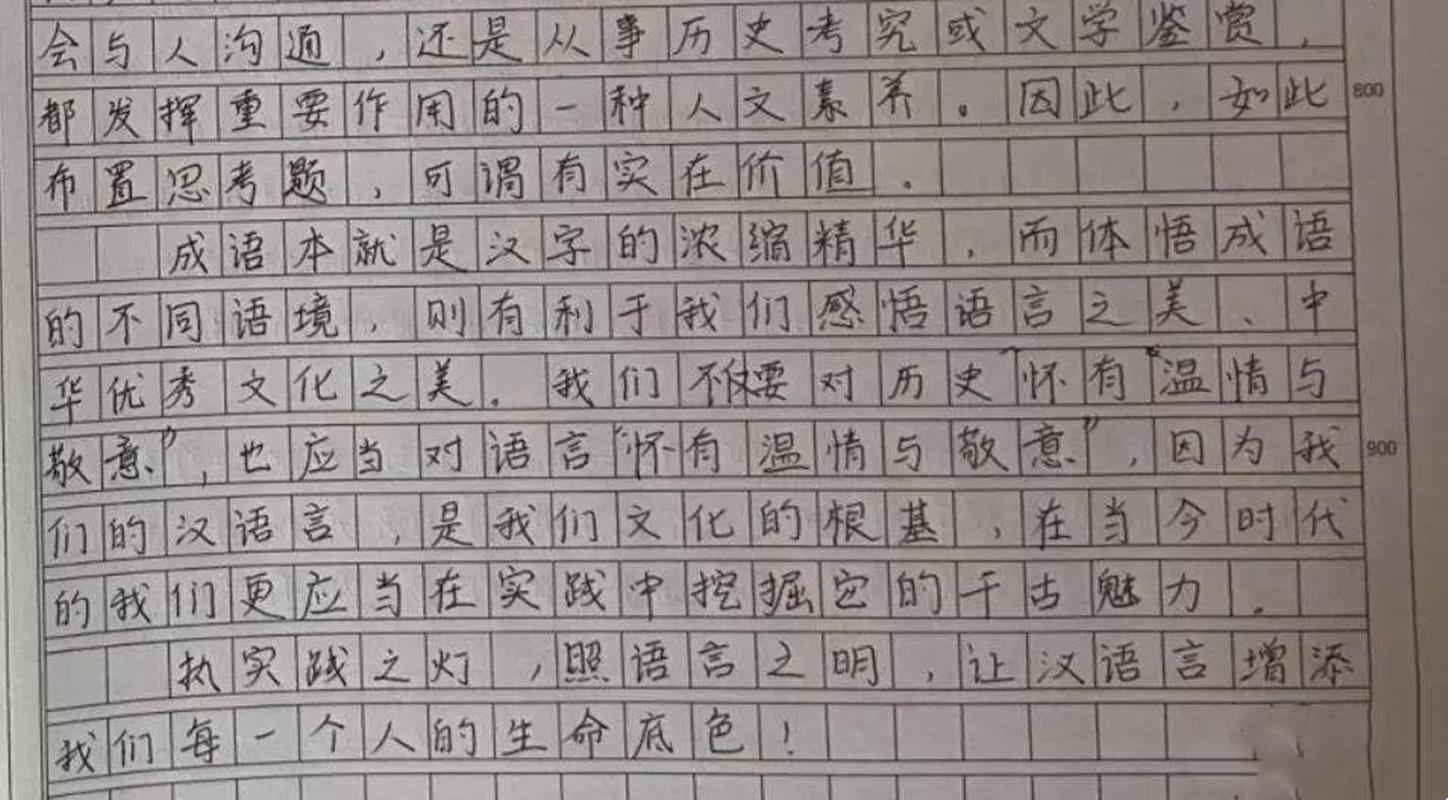 会与人沟通，还是从事历史考究或文学鉴赏，
都发挥重要作用的一种人文素养。因此，如此 800
布置思考题，可谓有实在价值。
成语本就是汉字的浓缩精华，而体悟成语
的不同语境，则有利于我们感悟语言之美、中
华优秀文化之美。我们不仅要对历史“怀有“温情与
敬意”，也应当对语言“怀有温情与敬意”，因为我 900
们的汉语言，是我们文化的根基，在当今时代
的我们更应当在实践中挖掘它的千古魅力。
执实践之灯，照语言之明，让汉语言增添
我们每一个人的生命底色！